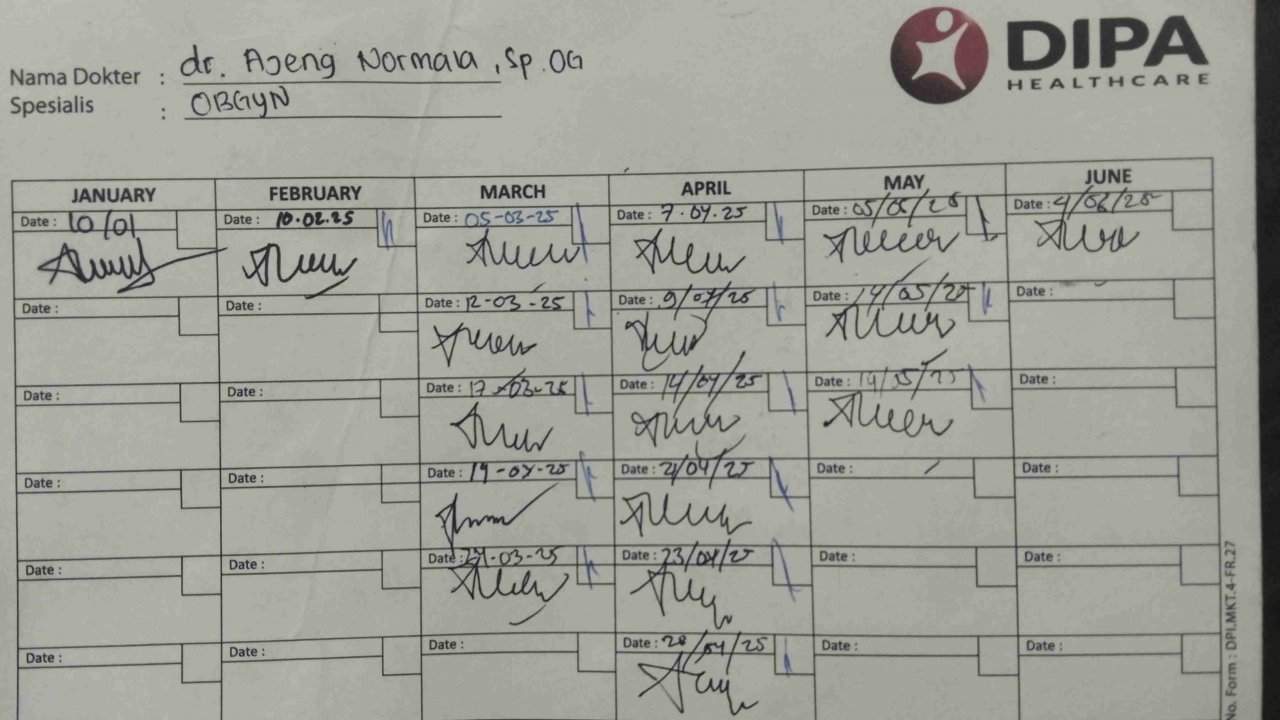 Nama Dokter : dr. Ajeng Normala, Sp.OG
Spesialis : OBGYN
DIPA
HEALTHCARE
JANUARY FEBRUARY MARCH APRIL MAY JUNE
Date : 10/01 Date : 10.02.25 Date : 05-03-25 Date : 7.04.25 Date : 05/05/25 Date : 4/06/25
Date : Date : Date : 12-03-25 Date : 9/04/25 Date : 14/05/25 Date :
Date : Date : Date : 17-03-25 Date : 14/04/25 Date : Date :
Date : Date : Date : Date : 21/04/25 Date : Date :
Date : Date : Date : 24-03-25 Date : 23/04/25 Date : Date :
Date : Date : Date : Date : 28/04/25 Date : Date :
No. Form : DPI.MKT.4-FR.27